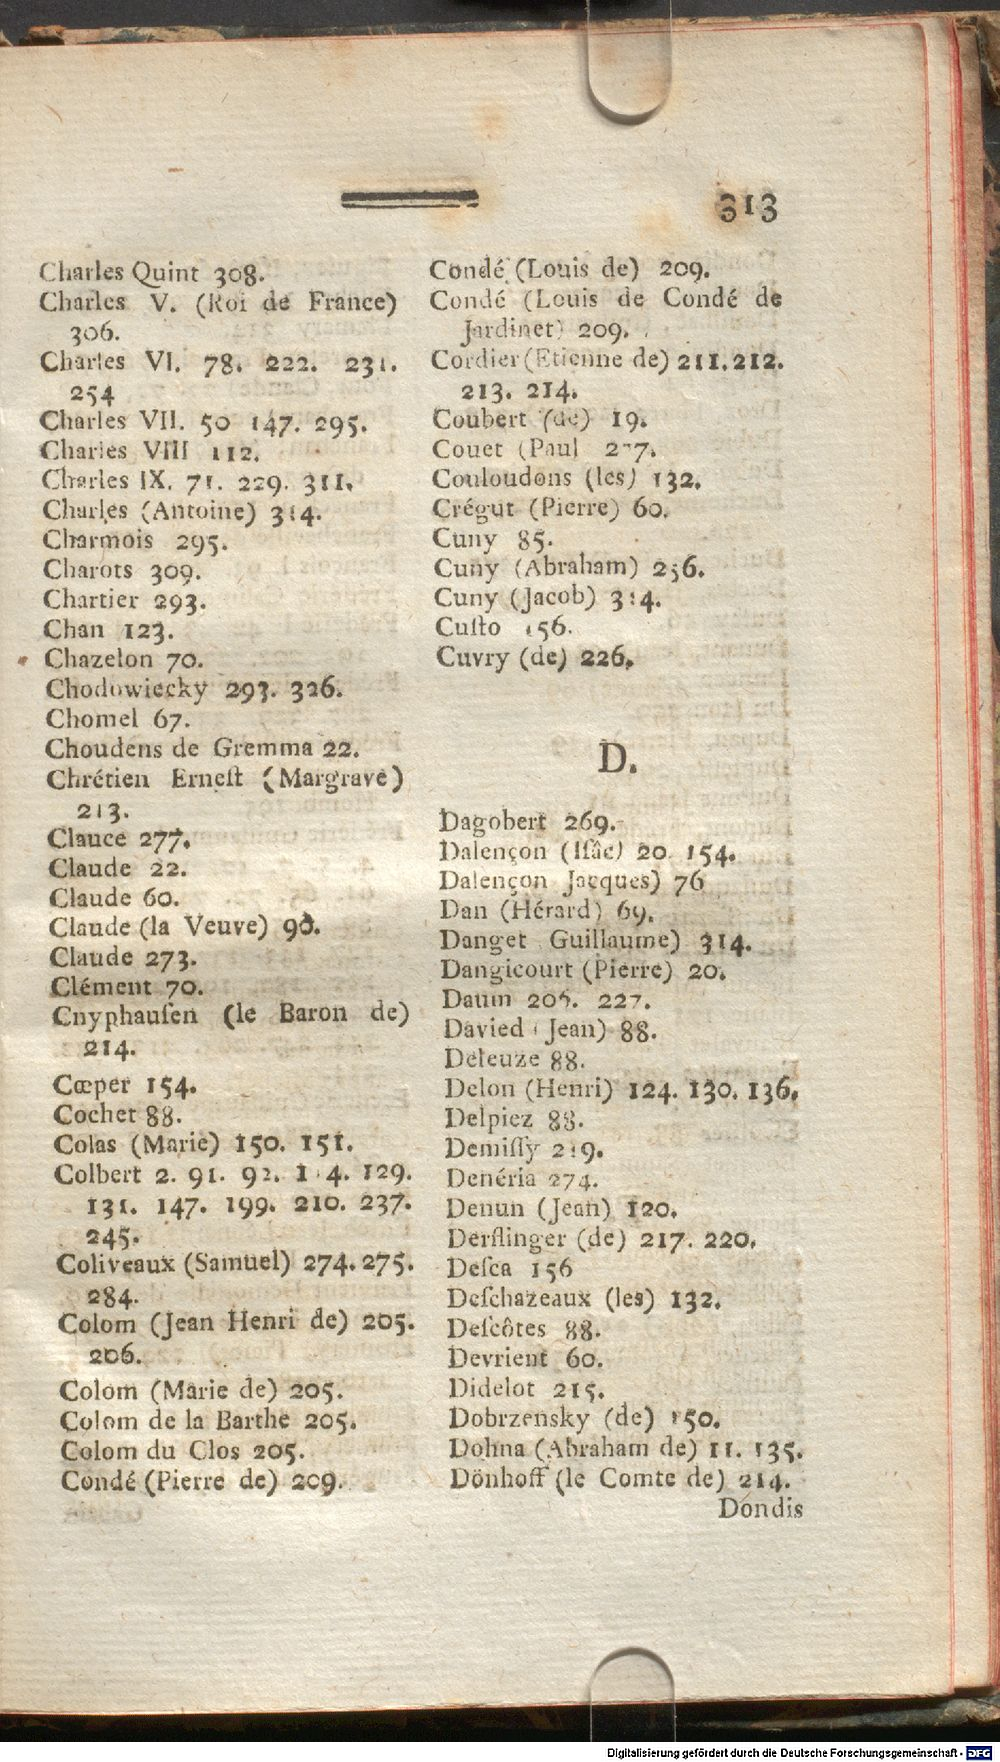 313
Charles Quint 308.
Charles V. (Roi de France)
306.
Charles VI. 78. 222. 231.
254
Charles VII. 50 147. 295.
Charles VIII 112.
Charles IX. 71. 229. 311.
Charles (Antoine) 314.
Charmois 295.
Charots 309.
Chartier 293.
Chan 123.
Chazelon 70.
Chodowiecky 293. 326.
Chomel 67.
Choudens de Gremma 22.
Chrétien Erneſt (Margrave)
213.
Clauce 277.
Claude 22.
Claude 60.
Claude (la Veuve) 90.
Claude 273.
Clément 70.
Cnyphauſen (le Baron de)
214.
Cœper 154.
Cochet 88.
Colas (Marie) 150. 151.
Colbert 2. 91. 92. 129.
131. 147. 199. 210. 237.
245.
Coliveaux (Samuel) 274. 275.
284.
Colom (Jean Henri de) 205.
206.
Colom (Marie de) 205.
Colom de la Barthe 205.
Colom du Clos 205.
Condé (Pierre de) 209.
Condé (Louis de) 209.
Condé (Louis de Condé de
Jardinet) 209.
Cordier (Etienne de) 211. 212.
213. 214.
Coubert (de) 19.
Couet (Paul
Couloudons (les) 132.
Crégut (Pierre) 60.
Cuny 85.
Cuny (Abraham) 256.
Cuny (Jacob) 314.
Cuſto 156.
Cuvry (de) 226.
D.
Dagobert 269.
Dalençon (Iſâc) 20. 154.
Dalençon Jacques) 76
Dan (Hérard) 69.
Danget Guillaume) 314.
Dangicourt (Pierre) 20.
Daum 205. 227.
Davied (Jean) 88.
Deleuze 88.
Delon (Henri) 124. 130. 136.
Delpiez 88.
Demiſſy 219.
Denéria 274.
Denun (Jean) 120.
Derflinger (de) 217. 220.
Deſca 156
Deſchazeaux (les) 132.
Deſcôtes 88.
Devrient 60.
Didelot 215.
Dobrzensky (de) 150.
Dohna (Abraham de) 11. 135.
Dönhoff (le Comte de) 214.
Dondis
Digitalisierung gefördert durch die Deutsche Forschungsgemeinschaft - DFG